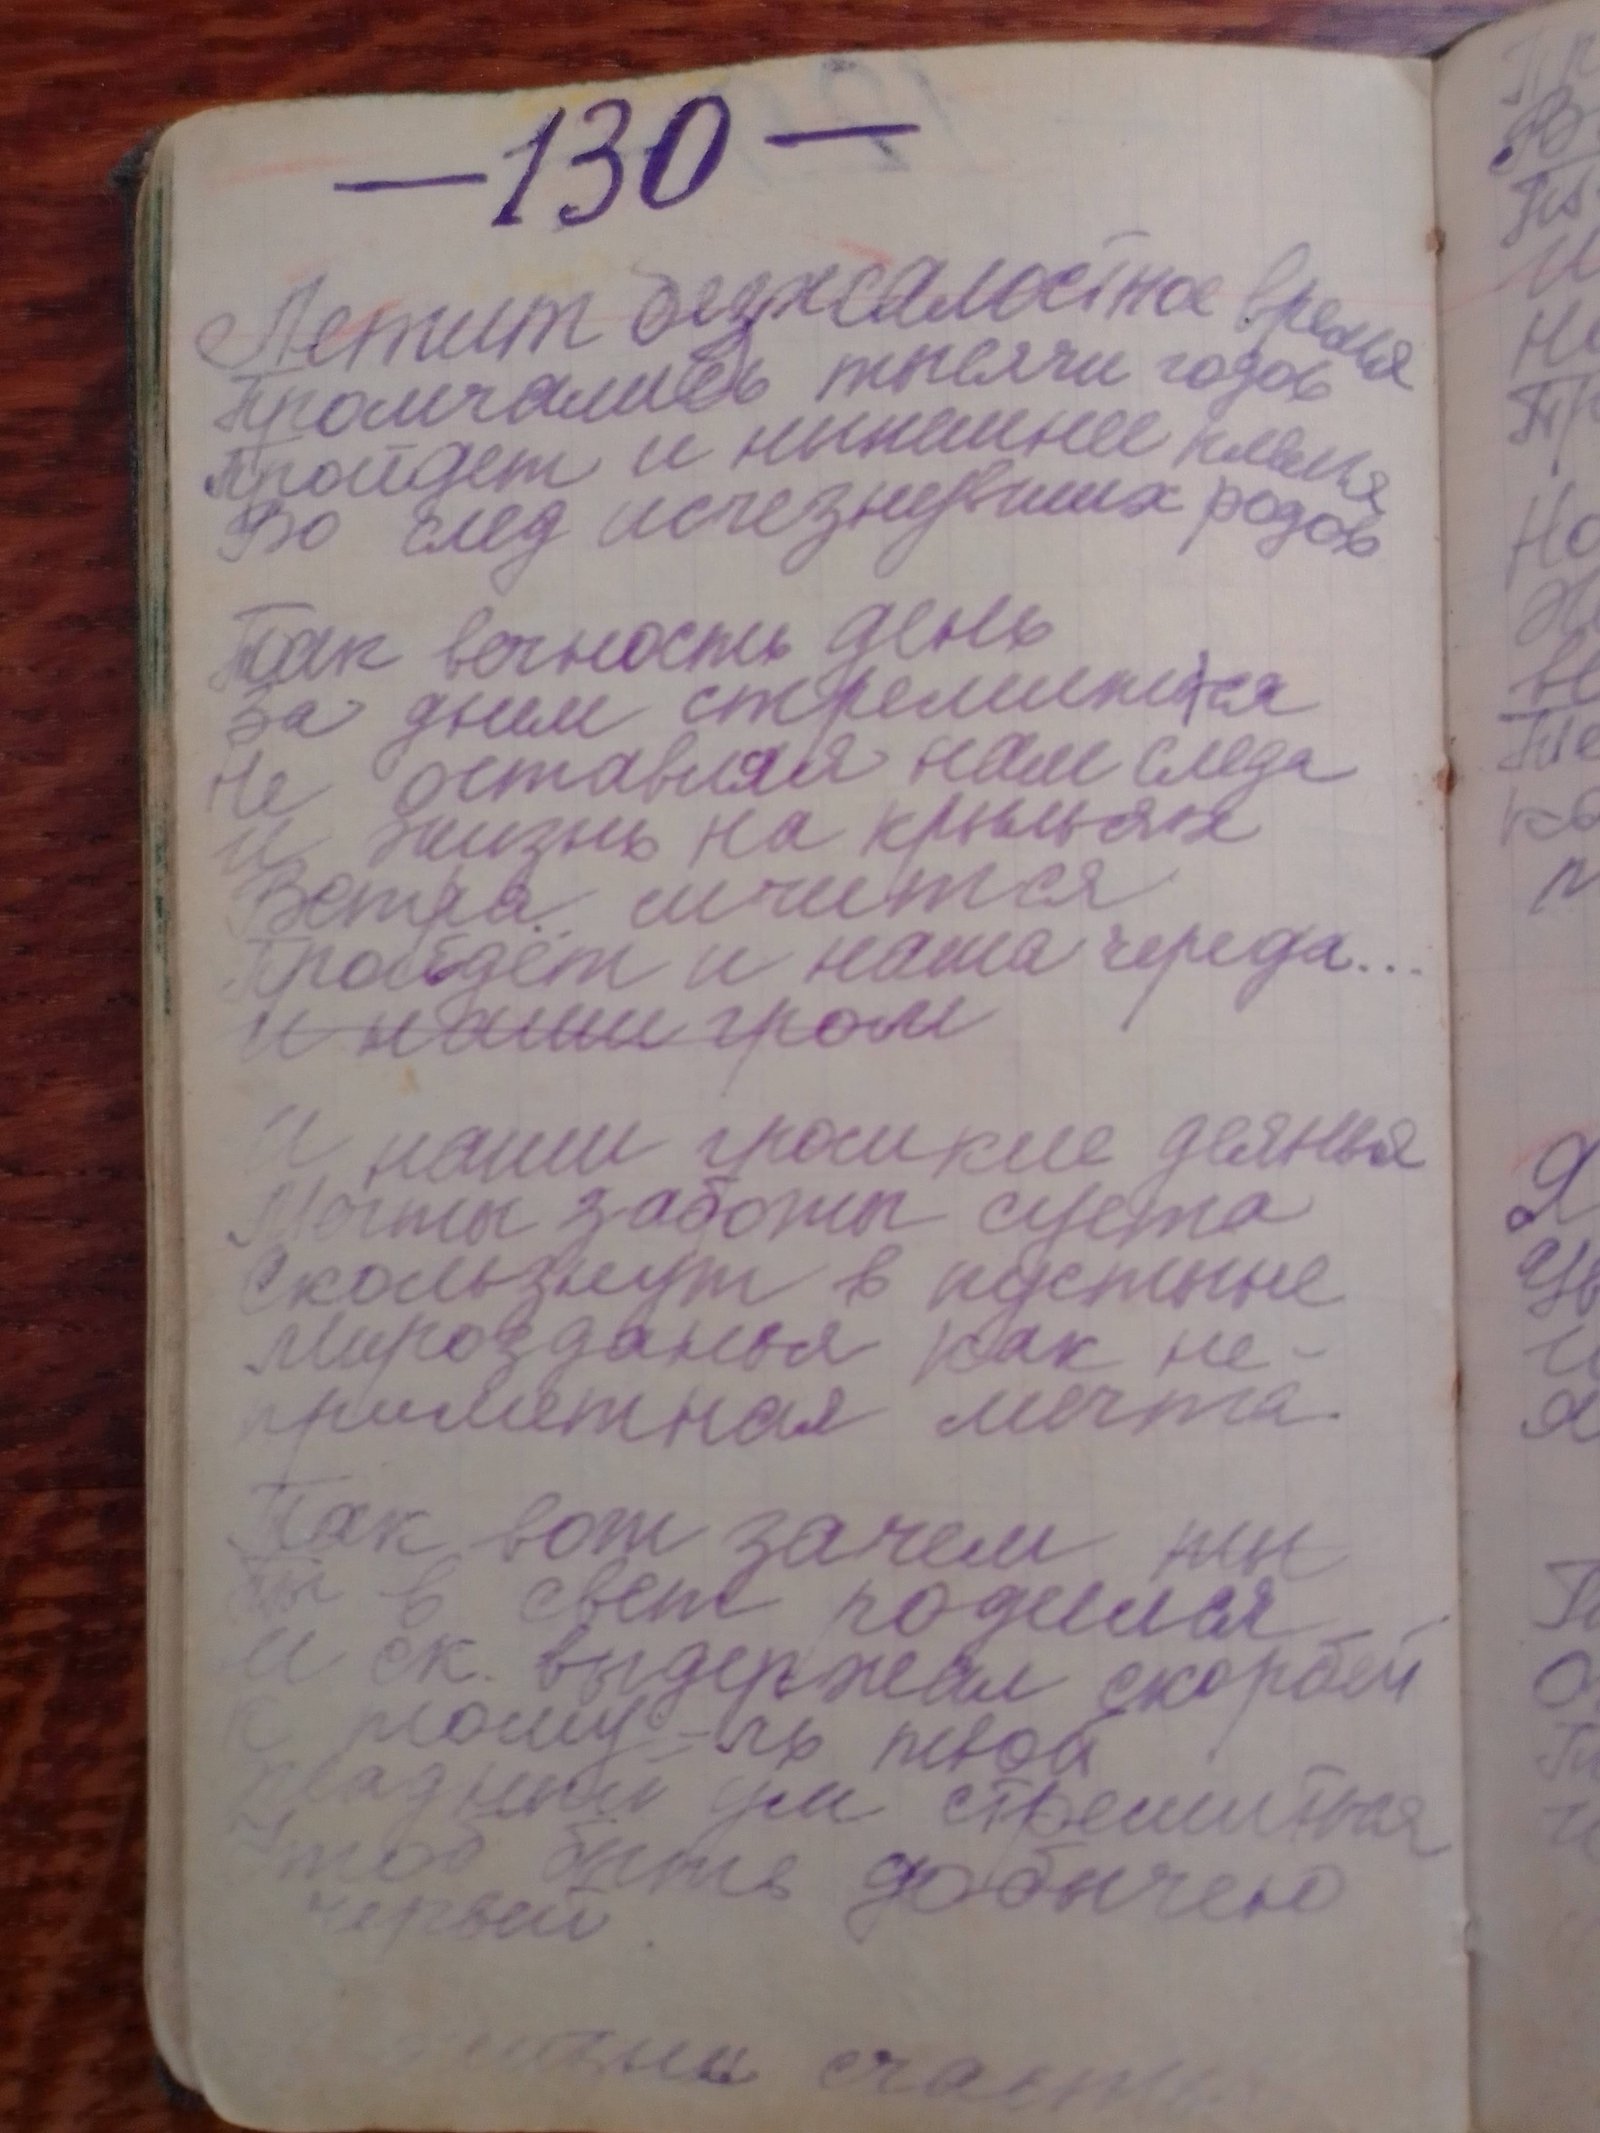 —130—
Летит безжалостное время
Промчались тысячи годов
Пройдет и нынешнее племя
Во след исчезнувших родов
Так вечность день
За днем стремится
Не оставляя нам следа
И жизнь на крыльях
Ветра мчится
Пройдёт и наша череда...
И наши гром
И наши громкие деянья
Мечты заботы суета
Скользнут в пустыне
Мирозданья как не-
приметная мечта.
Так вот зачем ты
ты в свет родился
И ск. выдержал скорбей
К тому-ль твой
жадный ум стремится
Чтоб быть добычею
червей.
счастья